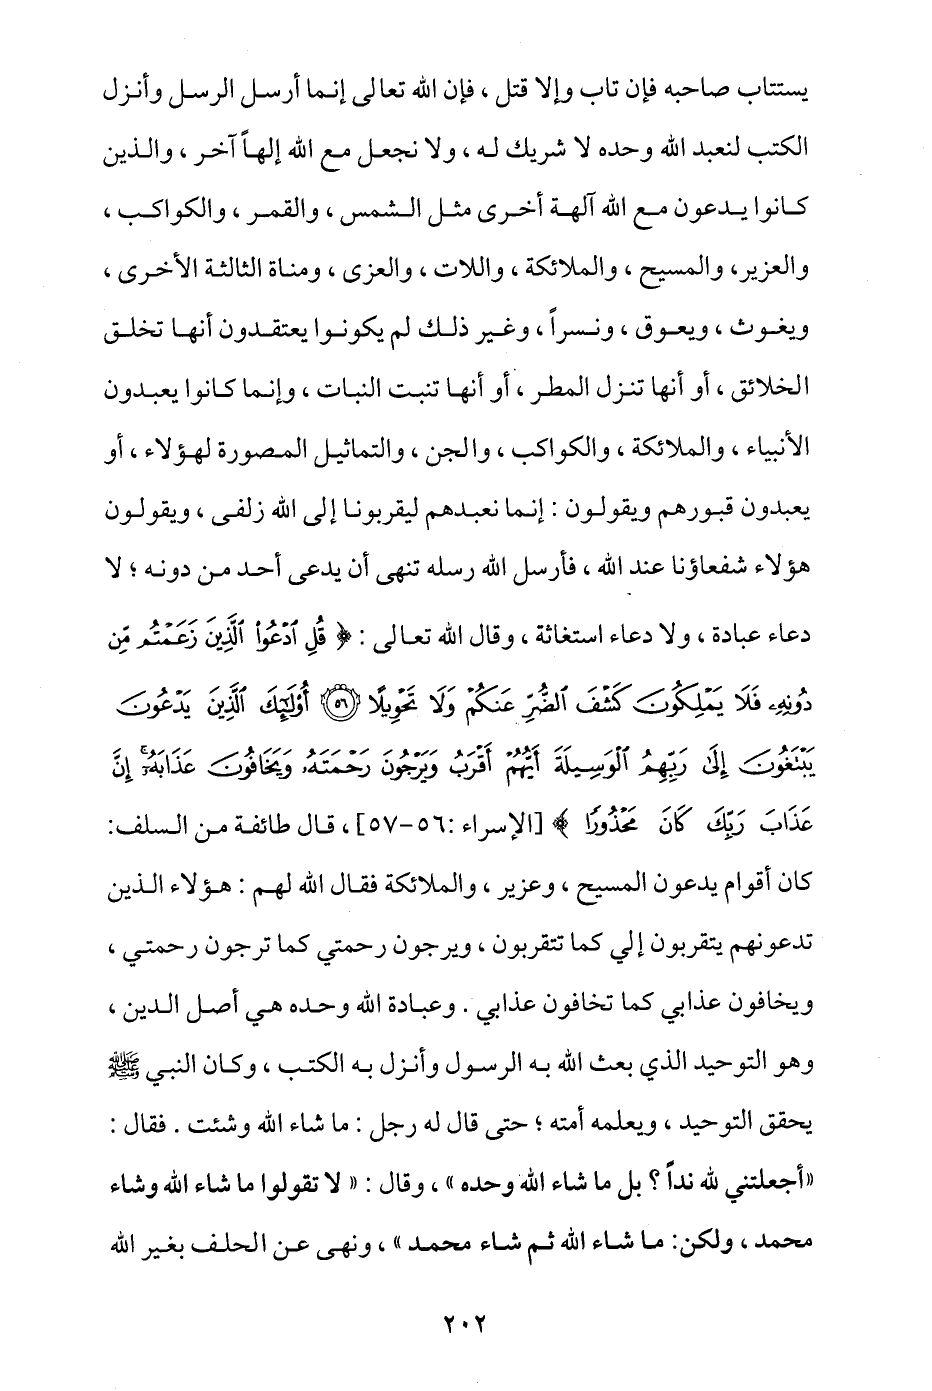 يستتاب صاحبه فإن تاب وإلا قتل ، فإن الله تعالى إنما أرسل الرسل وأنزل
الكتب لنعبد الله وحده لا شريك له ، ولا نجعل مع الله إلهاً آخر ، والذين
كانوا يدعون مع الله آلهة أخرى مثل الشمس ، والقمر ، والكواكب ،
والعزير، والمسيح ، والملائكة ، واللات ، والعزى ، ومناة الثالثة الأخرى ،
ويغوث ، ويعوق ، ونسراً ، وغير ذلك لم يكونوا يعتقدون أنها تخلق
الخلائق ، أو أنها تنزل المطر ، أو أنها تنبت النبات ، وإنما كانوا يعبدون
الأنبياء ، والملائكة ، والكواكب ، والجن ، والتماثيل المصورة لهؤلاء ، أو
يعبدون قبورهم ويقولون : إنما نعبدهم ليقربونا إلى الله زلفى ، ويقولون
هؤلاء شفعاؤنا عند الله ، فأرسل الله رسله تنهى أن يدعى أحد من دونه ؛ لا
دعاء عبادة ، ولا دعاء استغاثة ، وقال الله تعالى : ﴿ قُلِ ٱدْعُوا۟ ٱلَّذِينَ زَعَمْتُم مِّن
دُونِهِۦ فَلَا يَمْلِكُونَ كَشْفَ ٱلضُّرِّ عَنكُمْ وَلَا تَحْوِيلًا ۝٥٦ أُو۟لَٰٓئِكَ ٱلَّذِينَ يَدْعُونَ
يَبْتَغُونَ إِلَىٰ رَبِّهِمُ ٱلْوَسِيلَةَ أَيُّهُمْ أَقْرَبُ وَيَرْجُونَ رَحْمَتَهُۥ وَيَخَافُونَ عَذَابَهُۥٓ ۚ إِنَّ
عَذَابَ رَبِّكَ كَانَ مَحْذُورًا ﴾ [الإسراء :٥٦-٥٧] ، قال طائفة من السلف:
كان أقوام يدعون المسيح ، وعزير ، والملائكة فقال الله لهم : هؤلاء الذين
تدعونهم يتقربون إلي كما تتقربون ، ويرجون رحمتي كما ترجون رحمتي ،
ويخافون عذابي كما تخافون عذابي . وعبادة الله وحده هي أصل الدين ،
وهو التوحيد الذي بعث الله به الرسول وأنزل به الكتب ، وكان النبي ﷺ
يحقق التوحيد ، ويعلمه أمته ؛ حتى قال له رجل : ما شاء الله وشئت . فقال :
«أجعلتني لله نداً ؟ بل ما شاء الله وحده» ، وقال : « لا تقولوا ما شاء الله وشاء
محمد ، ولكن: ما شاء الله ثم شاء محمد » ، ونهى عن الحلف بغير الله
٢٠٢